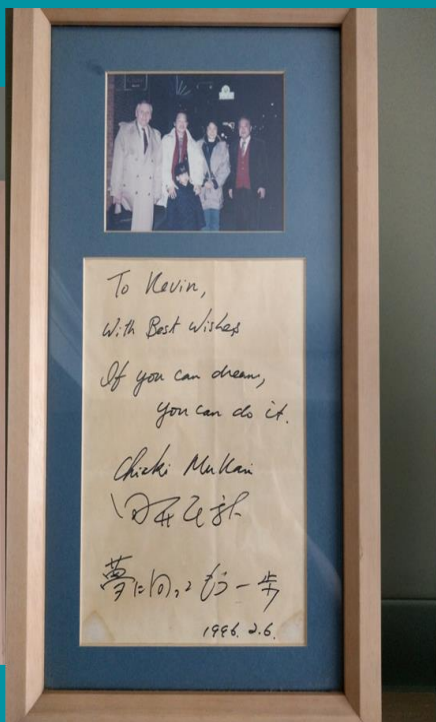 To Kevin,
With Best Wishes
If you can dream,
you can do it.
Chiaki Mukai
向井千秋
夢に向ってもう一歩
1996. 2.6.